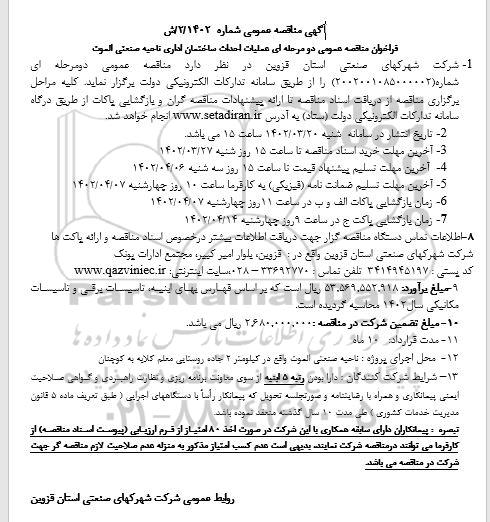 آگهی مناقصه عمومی شماره ۲/۱۴۰۲/ش
فراخوان مناقصه عمومی دو مرحله ای عملیات احداث ساختمان اداری ناحیه صنعتی الموت
1- شرکت شهرکهای صنعتی استان قزوین در نظر دارد مناقصه عمومی دومرحله ای
شماره(۲۰۰۲۰۰۱۰۸۵۰۰۰۰۰۲) را از طریق سامانه تدارکات الکترونیکی دولت برگزار نماید. کلیه مراحل
برگزاری مناقصه از دریافت اسناد مناقصه تا ارائه پیشنهادات مناقصه گران و بازگشایی پاکات از طریق درگاه
سامانه تدارکات الکترونیکی دولت (ستاد) به آدرس www.setadiran.ir انجام خواهد شد.
2- تاریخ انتشار در سامانه شنبه ۱۴۰۲/۰۳/۲۰ ساعت ۱۵ می باشد.
3- آخرین مهلت خرید اسناد مناقصه تا ساعت ۱۵ روز شنبه ۱۴۰۲/۰۳/۲۷
4- آخرین مهلت تسلیم پیشنهاد قیمت تا ساعت ۱۵ روز سه شنبه ۱۴۰۲/۰۴/۰۶
5- آخرین مهلت تسلیم ضمانت نامه (فیزیکی) به کارفرما ساعت ۱۰ روز چهارشنبه ۱۴۰۲/۰۴/۰۷
6- زمان بازگشایی پاکات الف و ب در ساعت ۱۱روز چهارشنبه ۱۴۰۲/۰۴/۰۷
7- زمان بازگشایی پاکت ج در ساعت ۹روز چهارشنبه ۱۴۰۲/۰۴/۱۴
۸-اطلاعات تماس دستگاه مناقصه گزار جهت دریافت اطلاعات بیشتر درخصوص اسناد مناقصه و ارائه پاکت ها
شرکت شهرکهای صنعتی استان قزوین واقع در : قزوین، بلوار امیر کبیر، مجتمع ادارات پونک
کد پستی : ۳۴۱۴۹۴۵۱۹۷ تلفن تماس : ۳۳۶۹۲۷۷۰-۰۲۸سایت اینترنتی: www.qazviniec.ir
۹-مبلغ برآورد: ۵۳.۵۶۹.۵۵۲.۹۱۸ ریال است که بر اساس فهارس بهای ابنیه، تاسیسات برقی و تاسیسات
مکانیکی سال۱۴۰۲ محاسبه گردیده است.
۱۰- مبلغ تضمین شرکت در مناقصه :۲.۶۸۰.۰۰۰.۰۰۰ ریال می باشد.
۱۱- مدت قرارداد: ۱۰ ماه
۱۲- محل اجرای پروژه : ناحیه صنعتی الموت واقع در کیلومتر ۲ جاده روستایی معلم کلایه به کوچنان
۱۳- شرایط شرکت کنندگان : دارا بودن رتبه ۵ ابنیه از سوی معاونت برنامه ریزی و نظارت راهبردی و گواهی صلاحیت
ایمنی پیمانکاری و همراه با رضایتنامه و صورتجلسه تحویل که پیمانکار راساً با دستگاههای اجرایی ( طبق تعریف ماده ۵ قانون
مدیریت خدمات کشوری ) طی مدت ۱۰ سال گذشته منعقد نموده باشد.
تبصره : پیمانکاران دارای سابقه همکاری با این شرکت در صورت اخذ ۸۰ امتیاز از فرم ارزیابی (پیوست اسناد مناقصه) از
کارفرما می توانند درمناقصه شرکت نمایند، بدیهی است عدم کسب امتیاز مذکور به منزله عدم صلاحیت لازم مناقصه گر جهت
شرکت در مناقصه می باشد.
روابط عمومی شرکت شهرکهای صنعتی استان قزوین